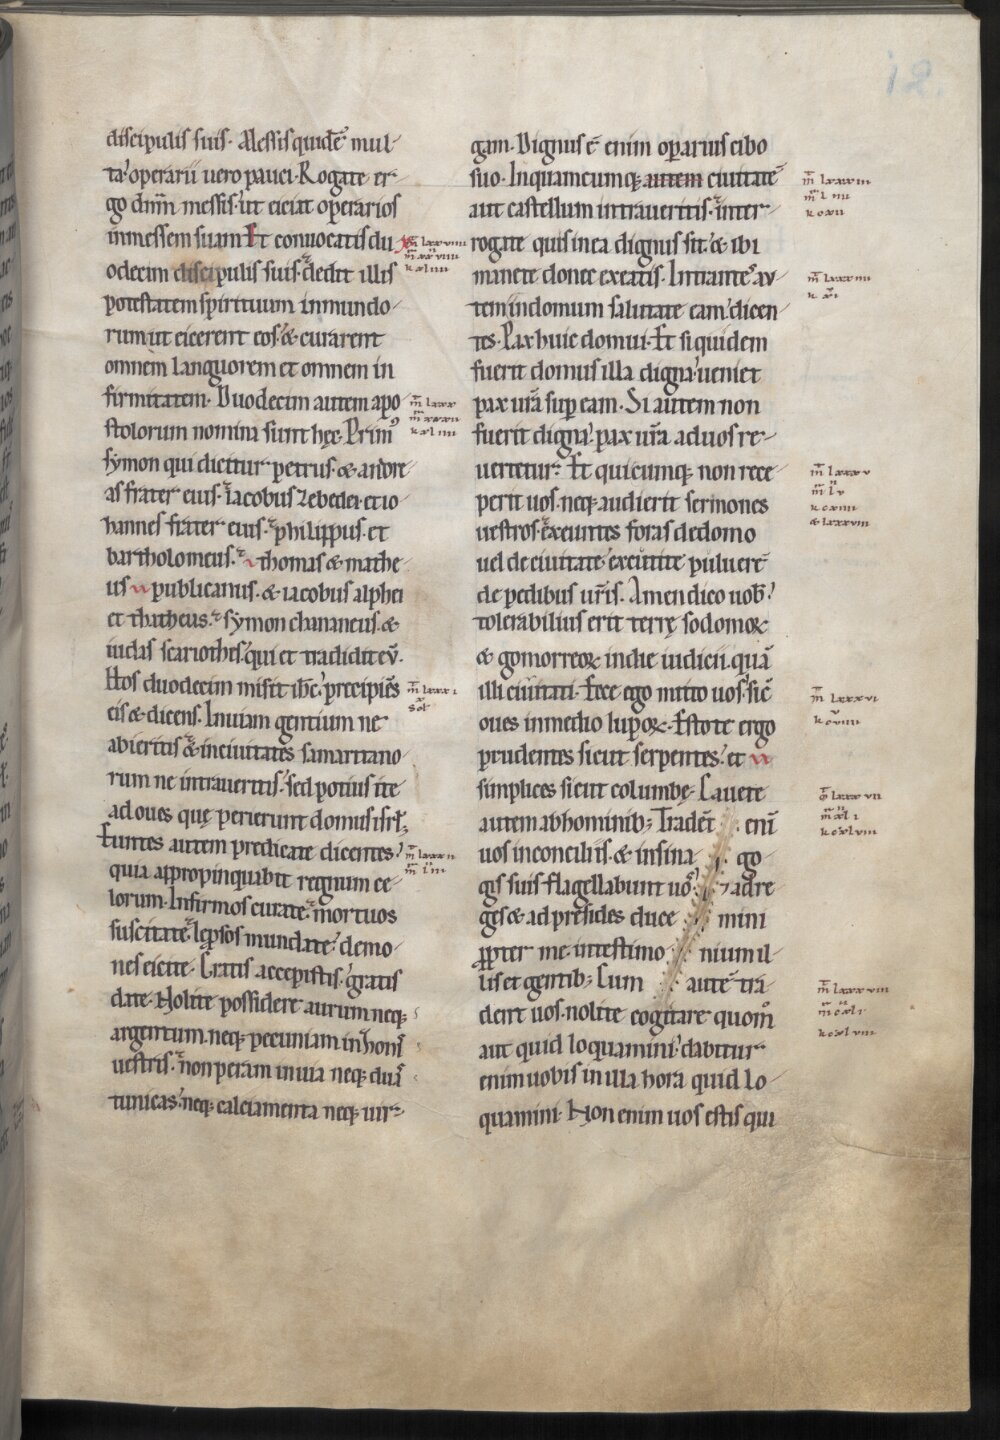 12.
discipulis suis. Messis quidē mul-
ta. operarii uero pauci. Rogate er-
go dnm̄ messis. ut eiciat operarios
in messem suam. Et conuocatis du-
odecim discipulis suis. dedit illis
potestatem spirituum inmundo-
rum ut eicerent eos. & curarent
omnem languorem et omnem in
firmitatem. Duodecim autem apo-
stolorum nomina sunt hęc. Primꝰ
symon qui dicitur petrus. & andre
as frater eius. iacobus zebedei. et io-
hannes frater eius. philippus. et
bartholomeus. thomas & mathe
us publicanus. & iacobus alphei
et thatheus. symon chananeus. &
iudas scariothis. qui et tradidit eū.
Hos duodecim misit ihc̄. precipiēs
eis & dicens. In uiam gentium ne
abieritis. & in ciuitates samaritano-
rum ne intraueritis. sed potius ite
ad oues quę perierunt domus isrl̄.
Euntes autem predicate dicentes.
quia appropinquabit regnum ce-
lorum. Infirmos curate. mortuos
suscitate. leprosos mundate. demo-
nes eicite. Gratis accepistis. gratis
date. Nolite possidere aurum neq;
argentum. neq; pecuniam in zonis
uestris. non peram in uia neq; duas
tunicas. neq; calciamenta neq; uir-
m̄ lxxviiii
m̄ lxxx
m̄ lxxxi
m̄ lxxxii
gam. Dignus ē enim operarius cibo
suo. In quamcumq; autem ciuitatē
aut castellum intraueritis. inter-
rogate quis in ea dignus sit. & ibi
manete donec exeatis. Intrantes au-
tem in domum salutate eam. dicen
tes. Pax huic domui. Et siquidem
fuerit domus illa digna. ueniet
pax ur̄a sup eam. Si autem non
fuerit digna. pax ur̄a ad uos re-
uertetur. Et quicumq; non rece-
perit uos. neq; audierit sermones
uestros. exeuntes foras de domo
uel de ciuitate. excutite puluerē
de pedibus ur̄is. Amen dico uob̄.
tolerabilius erit terrę sodomoꝝ
& gomorreoꝝ in die iudicii. quā
illi ciuitati. Ecce ego mitto uos. sic̄
oues in medio lupoꝝ. Estote ergo
prudentes sicut serpentes. et
simplices sicut columbę. Cauete
autem ab hominib; Tradēt enī
uos in conciliis. & in sina go
gis suis flagellabunt uos. & ad re
ges & ad presides duce mini
ꝓpter me. in testimo nium il-
lis et gentib; Cum autē tra
dent uos. nolite cogitare quom̄
aut quid loquamini. dabitur
enim uobis in illa hora quid lo-
quamini. Non enim uos estis qui
m̄ lxxxiii
m̄ lxxxiiii
m̄ lxxxv
m̄ lxxxvi
m̄ lxxxvii
m̄ lxxxviii